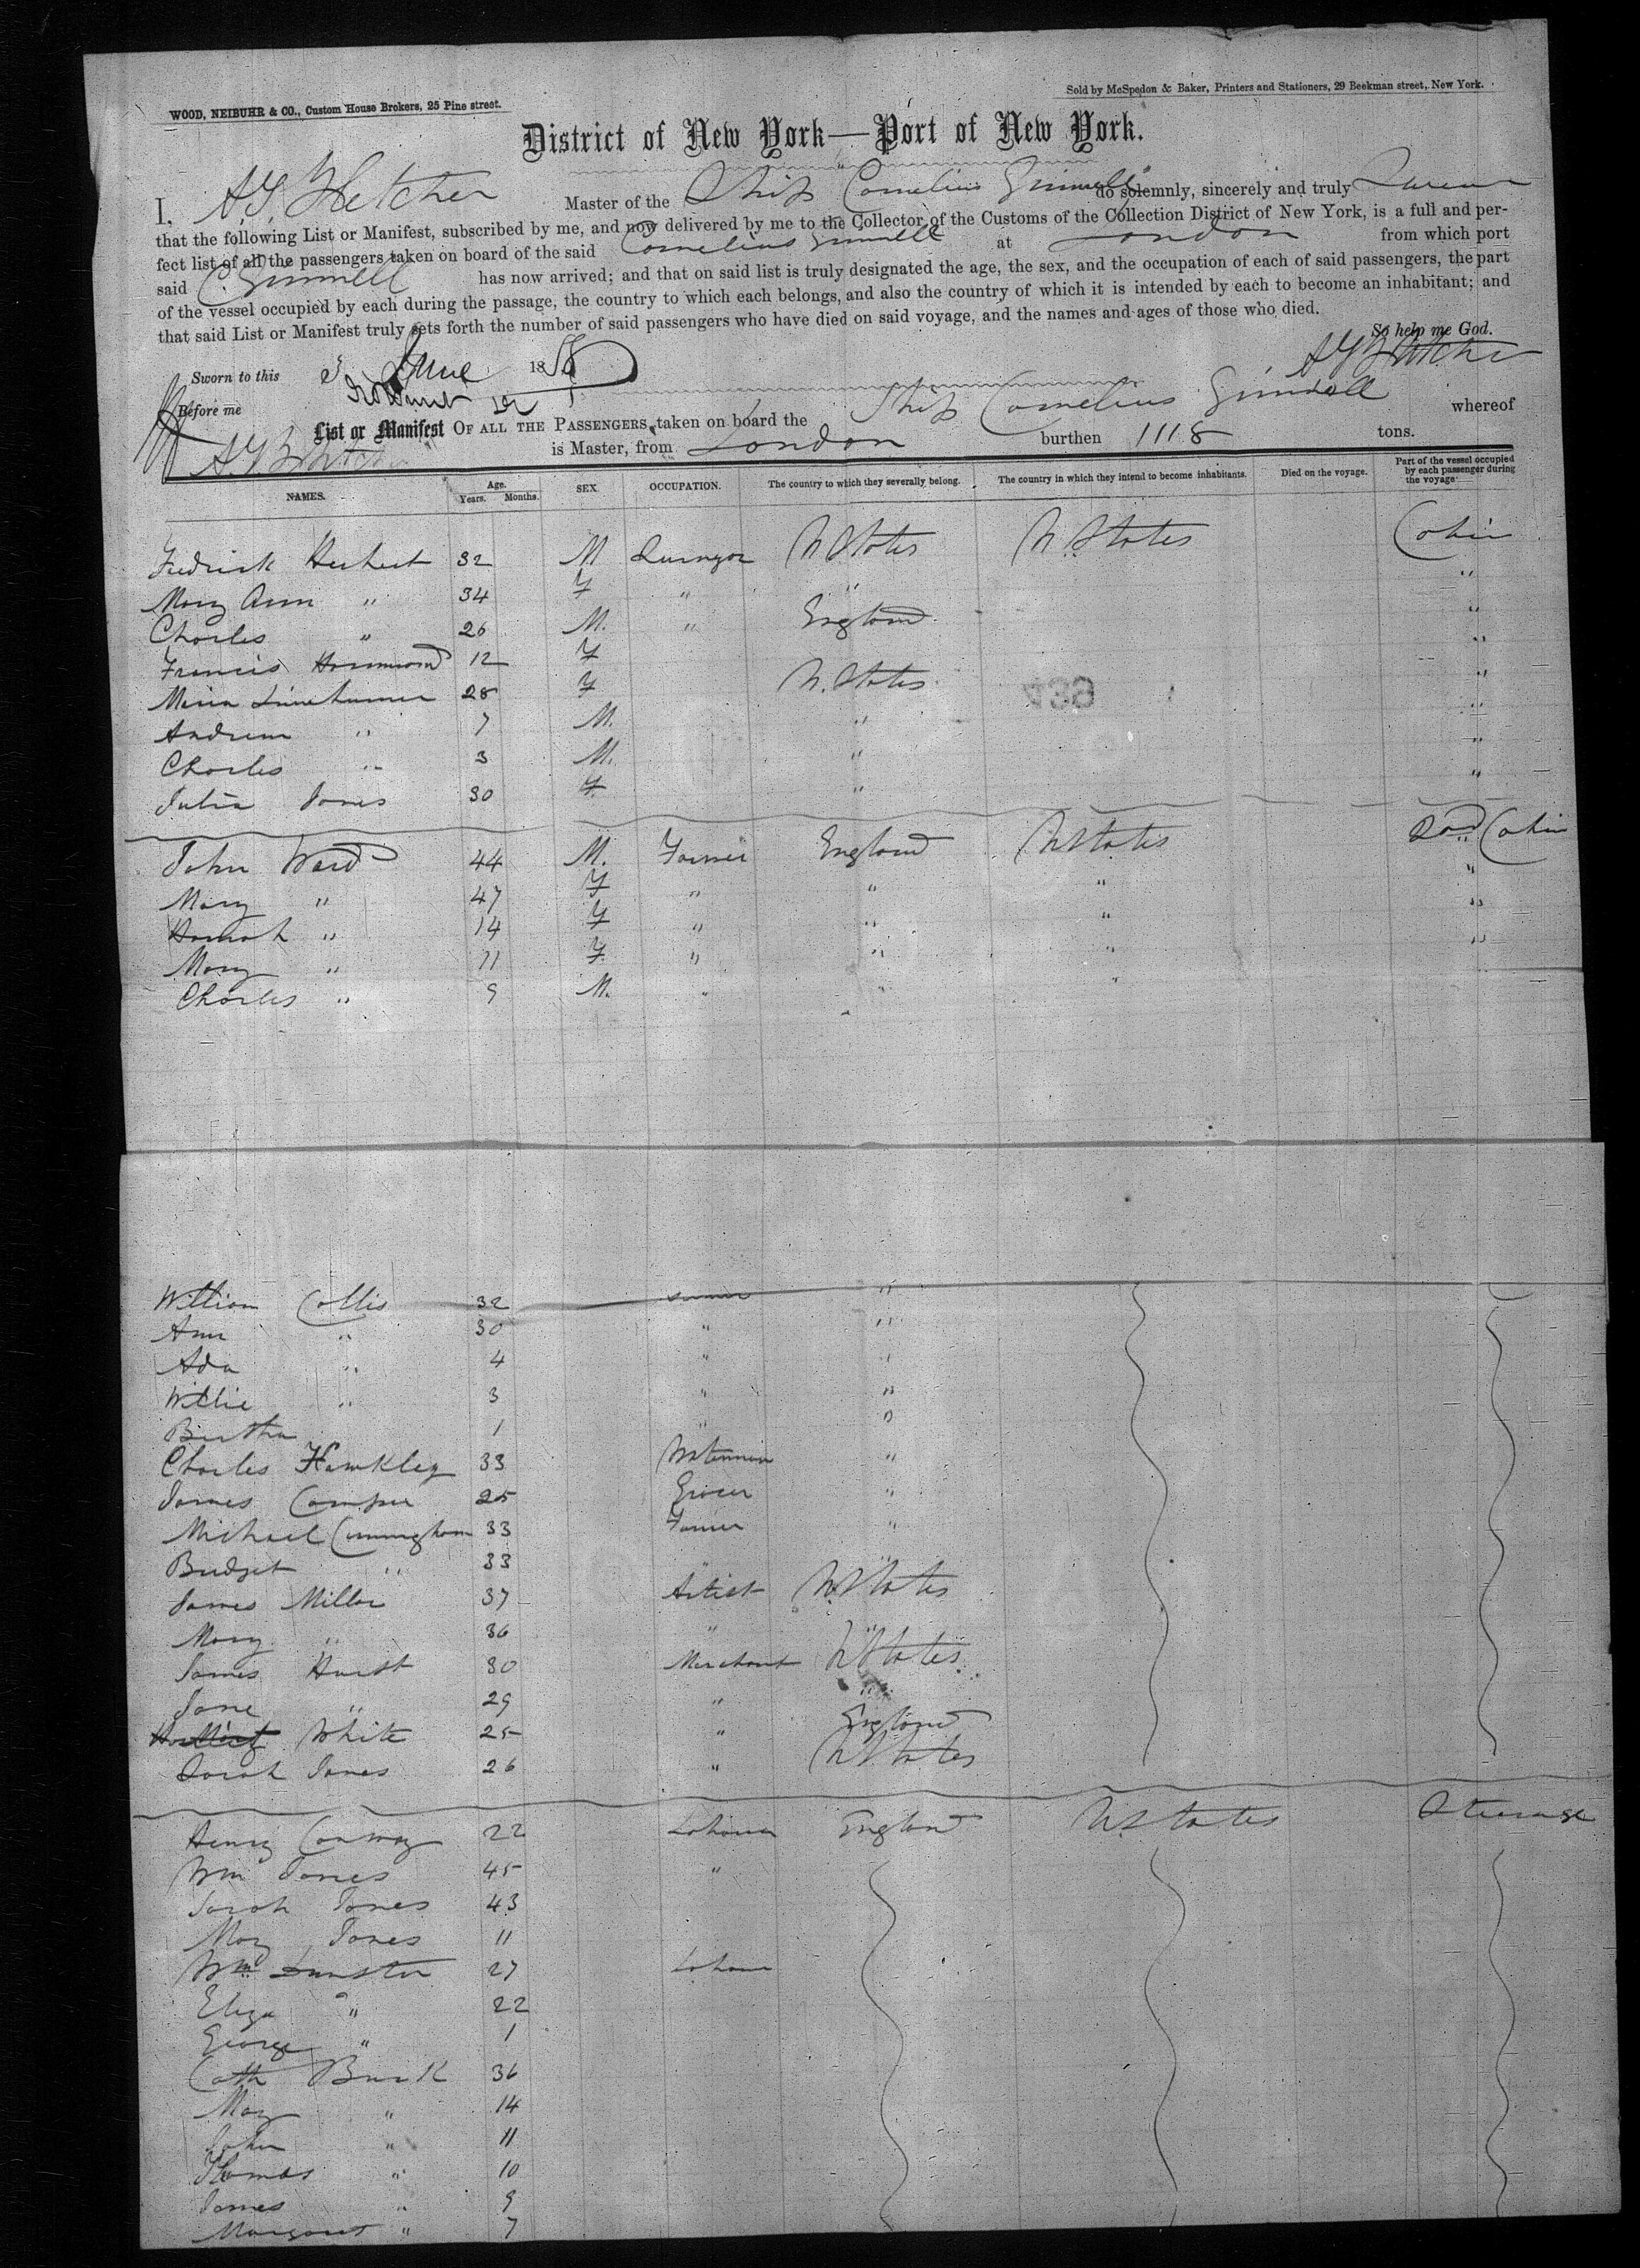 WOOD, NEIBUHR & CO., Custom House Brokers, 25 Pine street.
Sold by McSpedon & Baker, Printers and Stationers, 29 Beekman street, New York.
District of New York—Port of New York.
I, A. Fletcher Master of the Ship Cornelius Grinnell do solemnly, sincerely and truly Swear
that the following List or Manifest, subscribed by me, and now delivered by me to the Collector of the Customs of the Collection District of New York, is a full and per-
fect list of all the passengers taken on board of the said Cornelius Grinnell at London from which port
said C. Grinnell has now arrived; and that on said list is truly designated the age, the sex, and the occupation of each of said passengers, the part
of the vessel occupied by each during the passage, the country to which each belongs, and also the country of which it is intended by each to become an inhabitant; and
that said List or Manifest truly sets forth the number of said passengers who have died on said voyage, and the names and ages of those who died.
So help me God.
Sworn to this 3 June 18
Before me
List or Manifest OF ALL THE PASSENGERS taken on board the Ship Cornelius Grinnell whereof
is Master, from London burthen 1118 tons.
NAMES. Age. Years. Months. SEX. OCCUPATION. The country to which they severally belong. The country in which they intend to become inhabitants. Died on the voyage. Part of the vessel occupied by each passenger during the voyage
Fredrick Herbert 32 M U States U. States Cabin
Mary Ann " 34 F " " "
Charles " 26 M. " England "
Francis 12 F "
Maria 28 F U. States "
Andrew " 7 M. " "
Charles " 3 M. " "
Julia Jones 30 F. " "
John Ward 44 M. Farmer England U States 2nd Cabin
Mary " 47 F " " " "
Hannah " 14 F " " " "
Mary " 11 F. " " " "
Charles " 9 M. " " "
William Collis 32 "
Ann " 30 " "
Ada " 4 " "
Willie " 3 " "
Bertha 1 " "
Charles Hawkley 33 "
James Camper 25 Grocer "
Michael Cunningham 33 Farmer "
Bridget " 33 " "
James Miller 37 Artist U. States
Mary " 36 " "
James Hurst 30 Merchant U States
Jane " 29 " "
White 25 " England
Sarah Jones 26 " U States
Henry Conway 22 Labourer England U. States Steerage
Wm Jones 45 "
Sarah Jones 43
Mary Jones 11
Wm 27 Labourer
Eliza " 22
George " 1
Cath Burk 36
Mary " 14
John " 11
Thomas " 10
James " 9
Margaret " 7